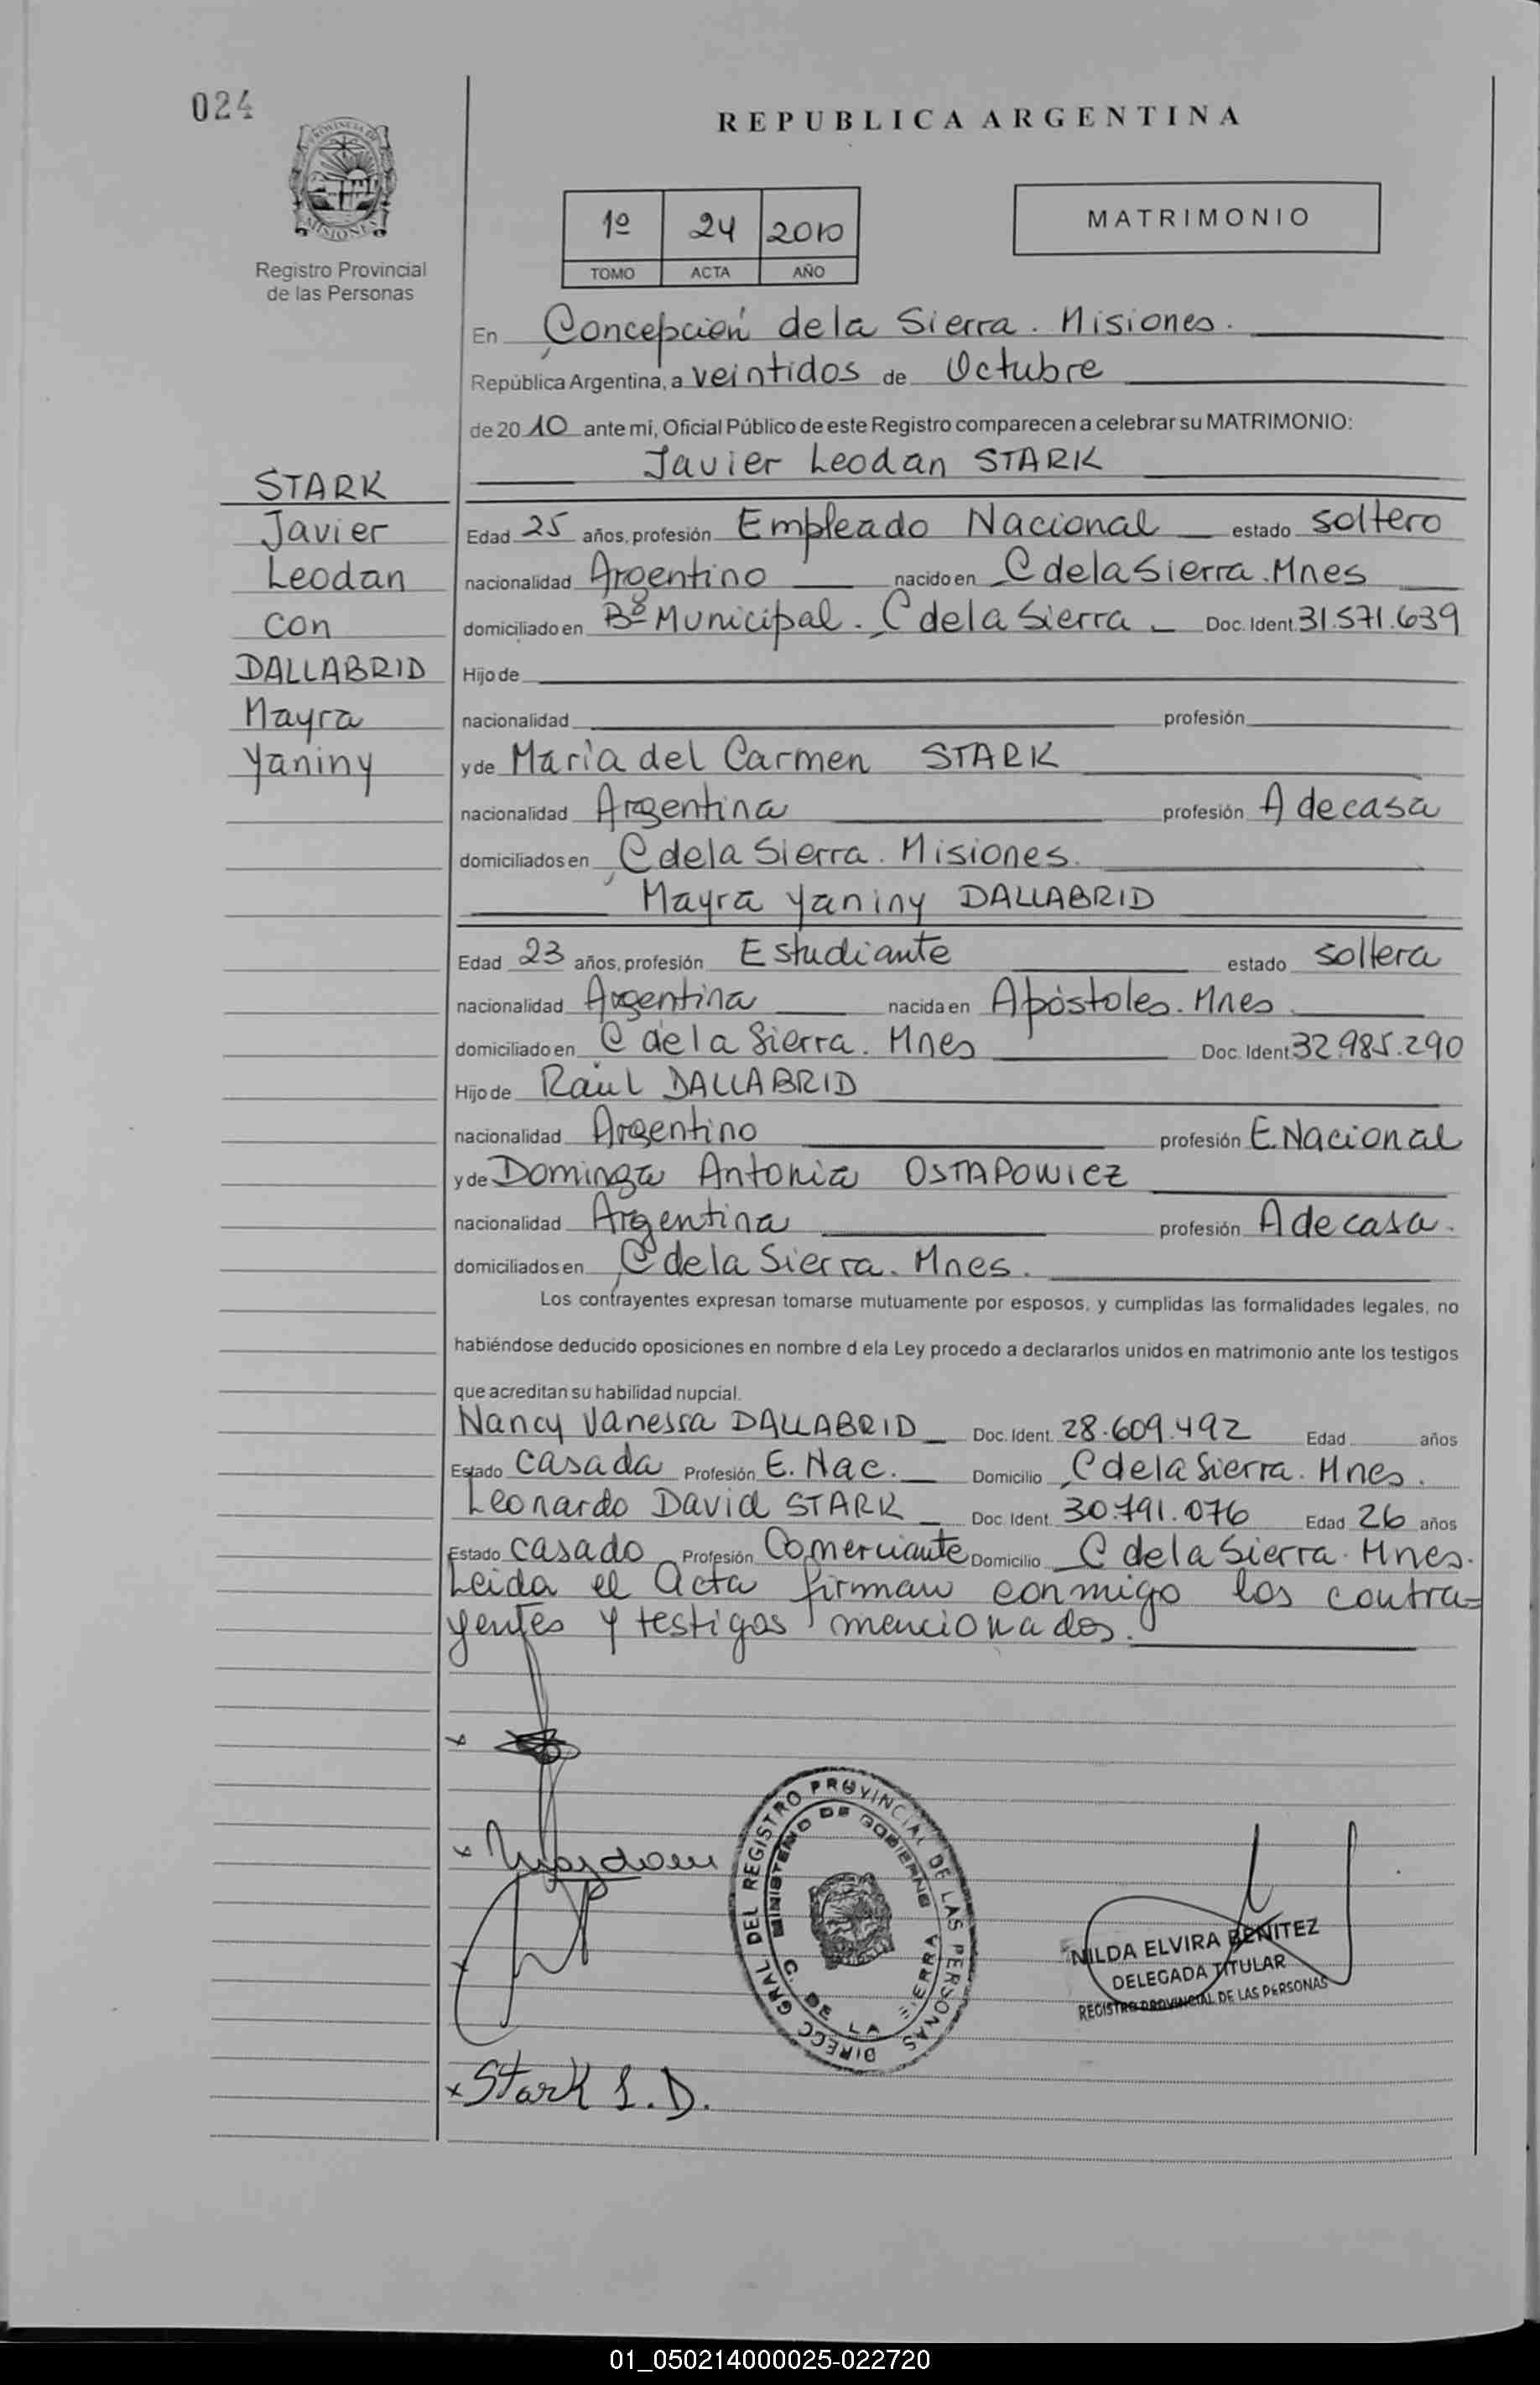 024
REPUBLICA ARGENTINA
PROVINCIA DE
MISIONES
Registro Provincial
de las Personas
1º 24 2010
TOMO ACTA AÑO
MATRIMONIO
En Concepción de la Sierra. Misiones.
República Argentina, a veintidos de Octubre
de 2010 ante mi, Oficial Público de este Registro comparecen a celebrar su MATRIMONIO:
Javier Leodan STARK
STARK
Javier
Leodan
con
DALLABRID
Mayra
Yaniny
Edad 25 años, profesión Empleado Nacional estado soltero
nacionalidad Argentino nacido en C de la Sierra. Mnes
domiciliado en Bº Municipal. C de la Sierra Doc. Ident. 31.571.639
Hijo de
nacionalidad profesión
y de María del Carmen STARK
nacionalidad Argentina profesión A de casa
domiciliados en C de la Sierra. Misiones.
Mayra Yaniny DALLABRID
Edad 23 años, profesión Estudiante estado soltera
nacionalidad Argentina nacida en Apóstoles. Mnes
domiciliado en C de la Sierra. Mnes Doc. Ident. 32.985.290
Hijo de Raúl DALLABRID
nacionalidad Argentino profesión E. Nacional
y de Dominga Antonia OSTAPOWIEZ
nacionalidad Argentina profesión A de casa.
domiciliados en C de la Sierra. Mnes.
Los contrayentes expresan tomarse mutuamente por esposos, y cumplidas las formalidades legales, no
habiéndose deducido oposiciones en nombre d ela Ley procedo a declararlos unidos en matrimonio ante los testigos
que acreditan su habilidad nupcial.
Nancy Vanessa DALLABRID Doc. Ident. 28.609.492 Edad años
Estado casada Profesión E. Nac. Domicilio C de la Sierra. Mnes.
Leonardo David STARK Doc. Ident. 30.791.076 Edad 26 años
Estado casado Profesión Comerciante Domicilio C de la Sierra. Mnes.
Leida el Acta firman conmigo los contra=
yentes y testigos mencionados.
DIRECC GRAL DEL REGISTRO PROVINCIAL DE LAS PERSONAS
MINISTERIO DE GOBIERNO
C. DE LA SIERRA
NILDA ELVIRA BENITEZ
DELEGADA TITULAR
REGISTRO PROVINCIAL DE LAS PERSONAS
Stark L. D.
01_050214000025-022720